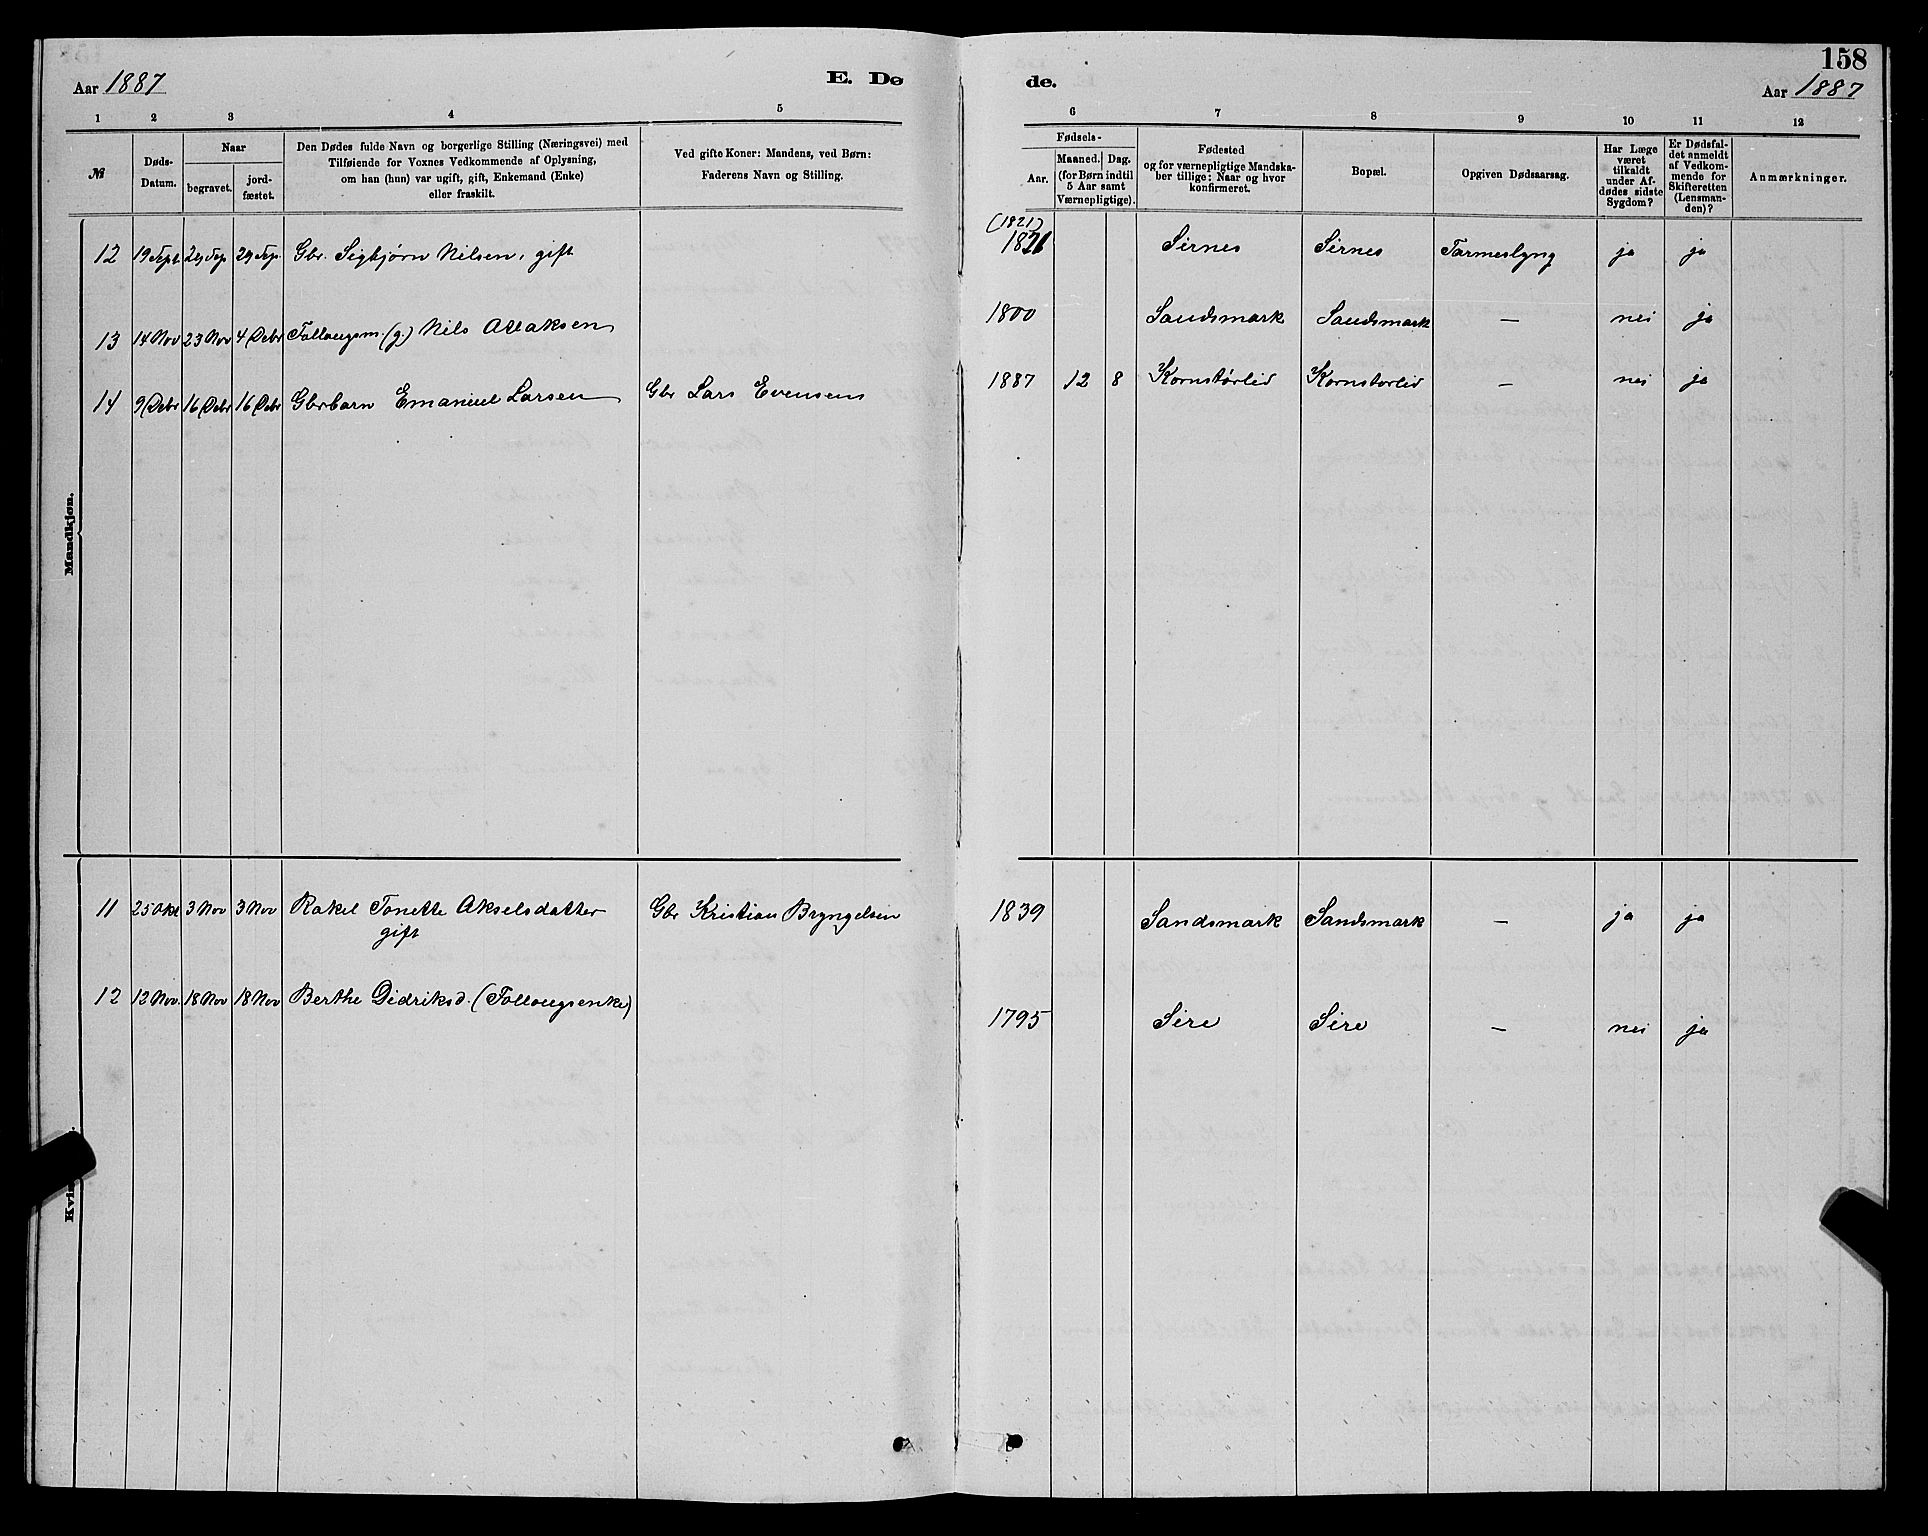 158
Aar 1887
E. Dø
de.
Aar 1887
1 2 3 4 5
6 7 8 9 10 11 12
№
Døds-
Datum.
Naar
begravet.
jord-
fæstet.
Den Dødes fulde Navn og borgerlige Stilling (Næringsvei) med
Tilføiende for Voxnes Vedkommende af Oplysning,
om han (hun) var ugift, gift, Enkemand (Enke)
eller fraskilt.
Ved gifte Koner: Mandens, ved Børn:
Faderens Navn og Stilling.
Fødsels-
Aar.
Maaned. Dag.
(for Børn indtil
5 Aar samt
Værnepligtige).
Fødested
og for værnepligtige Mandska-
ber tillige: Naar og hvor
konfirmeret.
Bopæl.
Opgiven Dødsaarsag.
Har Læge
været
tilkaldt
under Af-
dødes sidste
Sygdom?
Er Dødsfal-
det anmeldt
af Vedkom-
mende for
Skifteretten
(Lensman-
den)?
Anmærkninger.
Mandkjøn.
(1821)
12 19 Sept 29 Sep 29 Sep. Gbr. Sigbjørn Nilsen, gift 1821 Sirnes Sirnes Tarmeslyng ja ja
13 14 Nov 23 Nov 4 Debr Follougsm. (g.) Nils Atlaksen 1800 Sandsmark Sandsmark — nei ja
14 9 Debr 16 Debr 16 Debr Gbrbarn Emanuel Larsen Gbr Lars Evensens 1887 12 8 Kornstørlid Kornstorlid — nei ja
Kvi
11 25 Okt 3 Nov 3 Nov Rakel Tonette Akselsdatter Gbr Kristian Bryngelsen 1839 Sandsmark Sandsmark — ja ja
gift
12 12 Nov. 18 Nov 18 Nov Berthe Didriksd. (Follougsenke) 1795 Sire Sire — nei ja